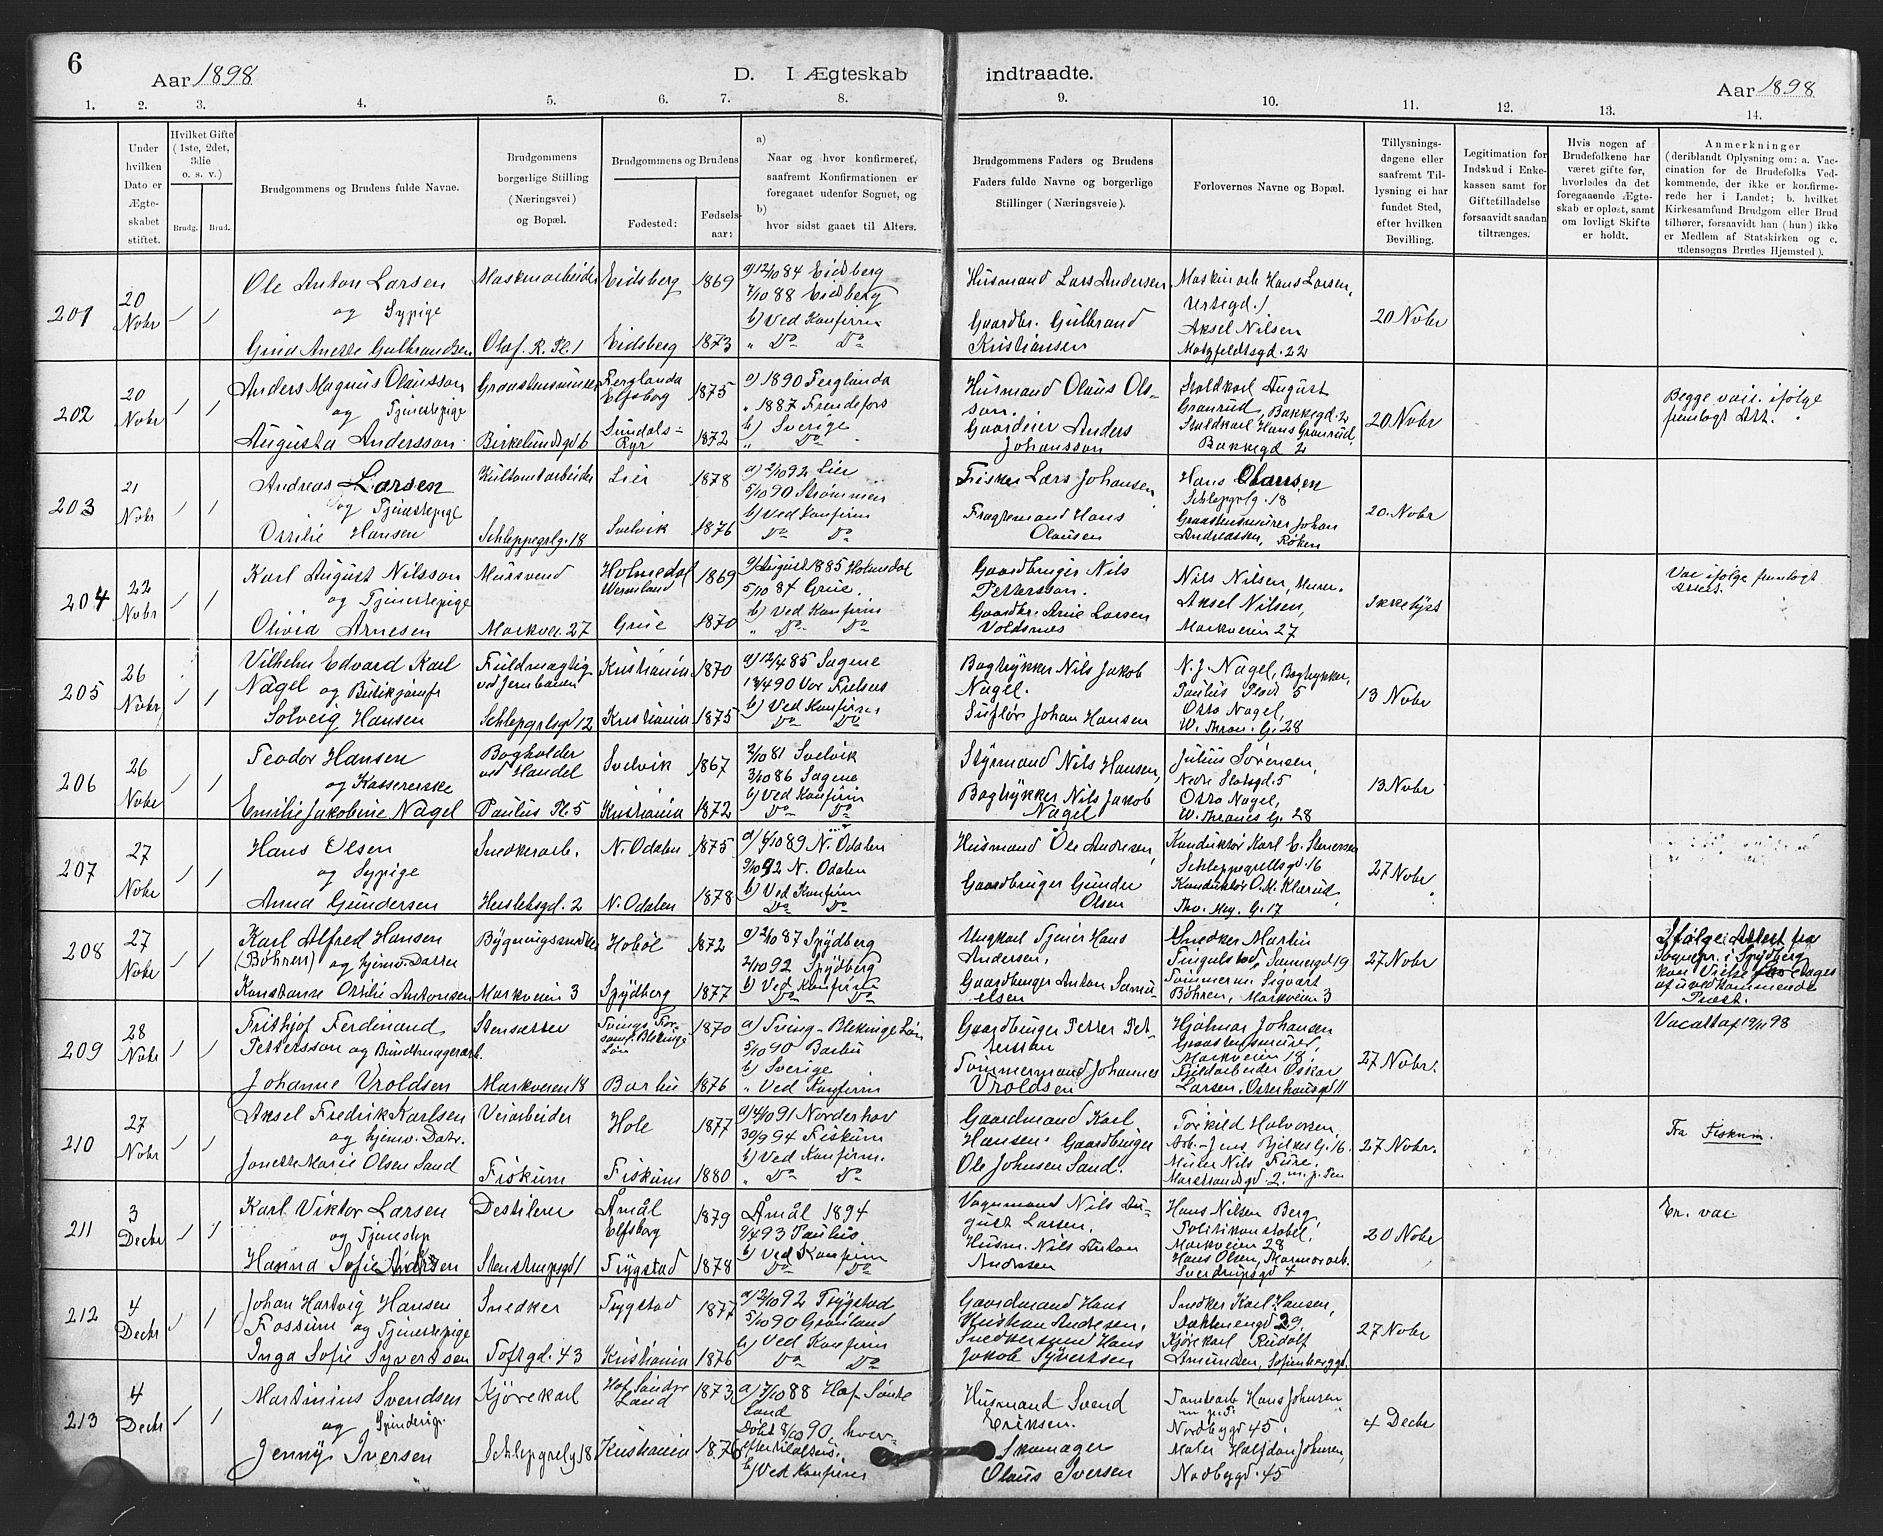 6
Aar 1898 D. I Ægteskab indtraadte. Aar 1898
1. 2. 3. 4. 5. 6. 7. 8. 9. 10. 11. 12. 13. 14.
Under hvilken Dato er Ægteskabet stiftet.
Hvilket Gifte (1ste, 2det, 3die o. s. v.)
Brudg. Brud.
Brudgommens og Brudens fulde Navne.
Brudgommens borgerlige Stilling (Næringsvei) og Bopæl.
Brudgommens og Brudens
Fødested: Fødselsaar:
a) Naar og hvor konfirmeret, saafremt Konfirmationen er foregaaet udenfor Sognet, og
b) hvor sidst gaaet til Alters.
Brudgommens Faders og Brudens Faders fulde Navne og borgerlige Stillinger (Næringsveie).
Forlovernes Navne og Bopæl.
Tillysningsdagene eller saafremt Tillysning ei har fundet Sted, efter hvilken Bevilling.
Legitimation for Indskud i Enkekassen samt for Giftetilladelse forsaavidt saadan tiltrænges.
Hvis nogen af Brudefolkene har været gifte før, hvorledes da det foregaaende Ægteskab er opløst, samt om lovligt Skifte er holdt.
Anmerkninger (deriblandt Oplysning om: a. Vaccination for de Brudefolks Vedkommende, der ikke er konfirmerede her i Landet; b. hvilket Kirkesamfund Brudgom eller Brud tilhører, forsaavidt han (hun) ikke er Medlem af Statskirken og c. udensogns Brudes Hjemsted).
201 20 Nobr 1 1
Ole Anton Larsen
og Sypige
Grina Anette Gulbrandsen
Maskinarbeider
Olaf R. Pl. 1
Eidsberg 1869
Eidsberg 1873
a) 12/10 84 Eidsberg
7/10 88 Eidsberg
b) Ved Konfirm
" Do Do
Husmand Lars Andersen
Gaardbr. Gulbrand
Kristiansen
Maskinarb Hans Larsen,
Urtegd. 1
Aksel Nilsen
Motzfeldtsgd. 22
20 Nobr
202 20 Nobr 1 1
Anders Magnus Olausson
og Tjenestepige
Augusta Andersson
Graastensminer
Birkelundsgd 6
Ferglanda
Elfsborg 1875
Sundals-
Ryr 1872
a) 1890 Ferglanda
" 1887 Frendefors
b) Sverige
" Do
Husmand Olaus Ols-
son.
Gaardeier Anders
Johansson
Staldkarl August
Granrud, Bakkegd. 2
Staldkarl Hans Granrud,
Bakkegd 2
20 Nobr
Begge vacc. ifølge
fremlagt Att.
203 21 Nobr 1 1
Andreas Larsen
og Tjenestepige
Ottilie Hansen
Schleppegrlg. 18
Lier 1878
Svelvik 1876
a) 2/10 92 Lier
5/10 90 Strømmen
b) Ved Konfirm
Do Do
Fisker Lars Johansen
Fragtemand Hans
Olausen
Hans Olausen
Schlepgrlg. 18
Graastensmurer Johan
Andreassen, Røken
20. Nobr
204 22 Nobr 1 1
Karl August Nilsson
og Tjenestepige
Olivia Arnesen
Mursvend
Markvei. 27
Holmedal
Wermland 1869
Grue 1870
a) August 1885 Holmedal
5/10 84 Grue.
b) Ved Konfirm
" Do Do
Gaardbruger Nils
Pettersson.
Gaardbr. Arne Larsen
Voldsnes
Nils Nilsen, Murer.
Aksel Nilsen,
Markveien 27
Ikke lyst
Vac ifølge fremlagt
Attest.
205 26 Nobr 1 1
Vilhelm Edvard Karl
Nagel og Butikjomfr
Solveig Hansen
Fuldmægtig
ved Jernbanen
Schlepgrlsgd 12
Kristiania 1870
Kristiania 1875
a) 12/4 85 Sagene
13/4 90 Vor Frelsers
b) Ved Konfirm
Do Do
Bogtrykker Nils Jakob
Nagel.
Suflør Johan Hansen
N. J. Nagel, Bogtrykker,
Paulus Plads 5
Otto Nagel,
W. Thran. G. 28
13 Nobr
206 26 Nobr 1 1
Teodor Hansen
og Kassererske
Emilie Jakobine Nagel
Bogholder
ved Handel
Paulus Pl. 5
Svelvik 1867
Kristiania 1872
2/10 81 Svelvik
3/10 86 Sagene
b) Ved Konfirm
Do Do
Styrmand Nils Hansen,
Bogtrykker Nils Jakob
Nagel
Julius Sørensen,
Nedre Slotsgd. 5
Otto Nagel,
W. Thranes G. 28
13 Nobr
207 27 Nobr 1 1
Hans Olsen
og Sypige
Anna Gundersen
Snedkerarb.
Heslebsgd. 2
N. Odalen 1875
N. Odalen 1878
a) 6/10 89 N. Odalen
9/10 92 N. Odalen
b) Ved Konfirm
Do Do
Husmand Ole Andresen,
Gaardbruger Gunder
Olsen
Konduktør Karl E. Stenersen
Schleppegrellsgd. 16
Konduktør O. M. Klarud,
Thv. Mey. G. 17
27 Nobr
208 27 Nobr 1 1
Karl Alfred Hansen
(Bøhren) og hjemv. Datter
Konstanse Ottilie Antonsen
Bygningssnedker
Markveien 3
Hobøl 1872
Spydberg 1877
a) 2/10 87 Spydberg
2/10 92 Spydberg
b) Ved Konfirm
Do Do
Ungkarl Tjener Hans
Andersen,
Gaardbruger Anton Samu-
elsen
Snedker Martin
Tingulstad, Sannergd 19
Tømmerm. Sigvart
Bøhren, Markveien 3
27 Nobr
Ifølge Attest fra
Sognepr. i Spydberg
kan Vielse foretages
af uvedkommende
Præst.
209 28 Nobr 1 1
Frithjof Ferdinand
Pettersson og Bundtmagerarb.
Johanne Vroldsen
Stensætter
Markveien 18
Tvings For-
saml. Blekinge
Län 1870
Barbu 1876
a) Tving - Blekinge Län
5/10 90 Barbu
b) Sverige
" Ved Konfirm
Gaardbruger Petter Pet-
tersson
Tømmermand Johannes
Vroldsen
Hjalmar Johansen
Graastensmurer,
Markveien 18,
Fjeldarbeider Oskar
Larsen, Osterhausgd 11
27 Nobr.
Vacatt af 19/11 98
210 27 Nobr 1 1
Aksel Fredrik Karlsen
og hjemv. Datr.
Jonette Marie Olsen Sand
Veiarbeider
Fiskum
Hole 1877
Fiskum 1880
a) 4/10 91 Norderhov
30/9 94 Fiskum
b) Ved Konfirm.
" Do Do
Gaardmand Karl
Hansen. Gaardbruger
Ole Johnsen Sand.
Torkild Halvorsen,
Arb. Jens Bjelkes G. 16.
Murer Nils Fure,
27 Nobr.
Fra Fiskum.
211 3 Decbr 1 1
Karl Viktor Larsen
og Tjenestep
Hanna Sofie Andersen
Destilerer
Stenstrupsgd 1
Åmål
Elfsborg 1879
Trygstad 1878
Åmål 1894
9/4 93 Paulus
b) Ved Konfirm
Do Do
Vognmand Nils Au-
gust Larsen.
Husm. Nils Anton
Andersen
Hans Nilsen Berg,
Politikonstabel,
Markveien 28
Hans Olsen, Marmorarb.
Sverdrupsgd 4
20 Nobr
Er. vac
212 4 Decbr 1 1
Johan Hartvig Hansen
Fossum og Tjenestepige
Inga Sofie Syvertsen
Snedker
Toftgd. 43
Trygstad 1877
Kristiania 1876
a) 2/10 92 Trygstad
5/10 90 Grønland
b) Ved Konfirm
Do Do
Gaardmand Hans
Kristian Andresen.
Snedkersvend Hans
Jakob Syvertsen
Snedker Karl Hansen,
Dælenengd 29,
Kjørekarl Rudolf
Amundsen, Sofienberggd.
27 Nobr
213 4 Decbr 1 1
Martinius Svendsen
og Spinderig.
Jenny Iversen
Kjørekarl
Schlepgrelg 18
Hof Søndre
Land 1873
Kristiania 1876
a) 7/10 88 Hof Søndre
Land
Døbt 8/10 90, hver-
b) Ved Konfirm
Husmand Svend
Eriksen.
Skomager
Olaus Iversen
Tomtearb Hans Johnsen
Nordbygd 45
Maler Halfdan Johnsen,
Nordbygd. 45
4 Decbr